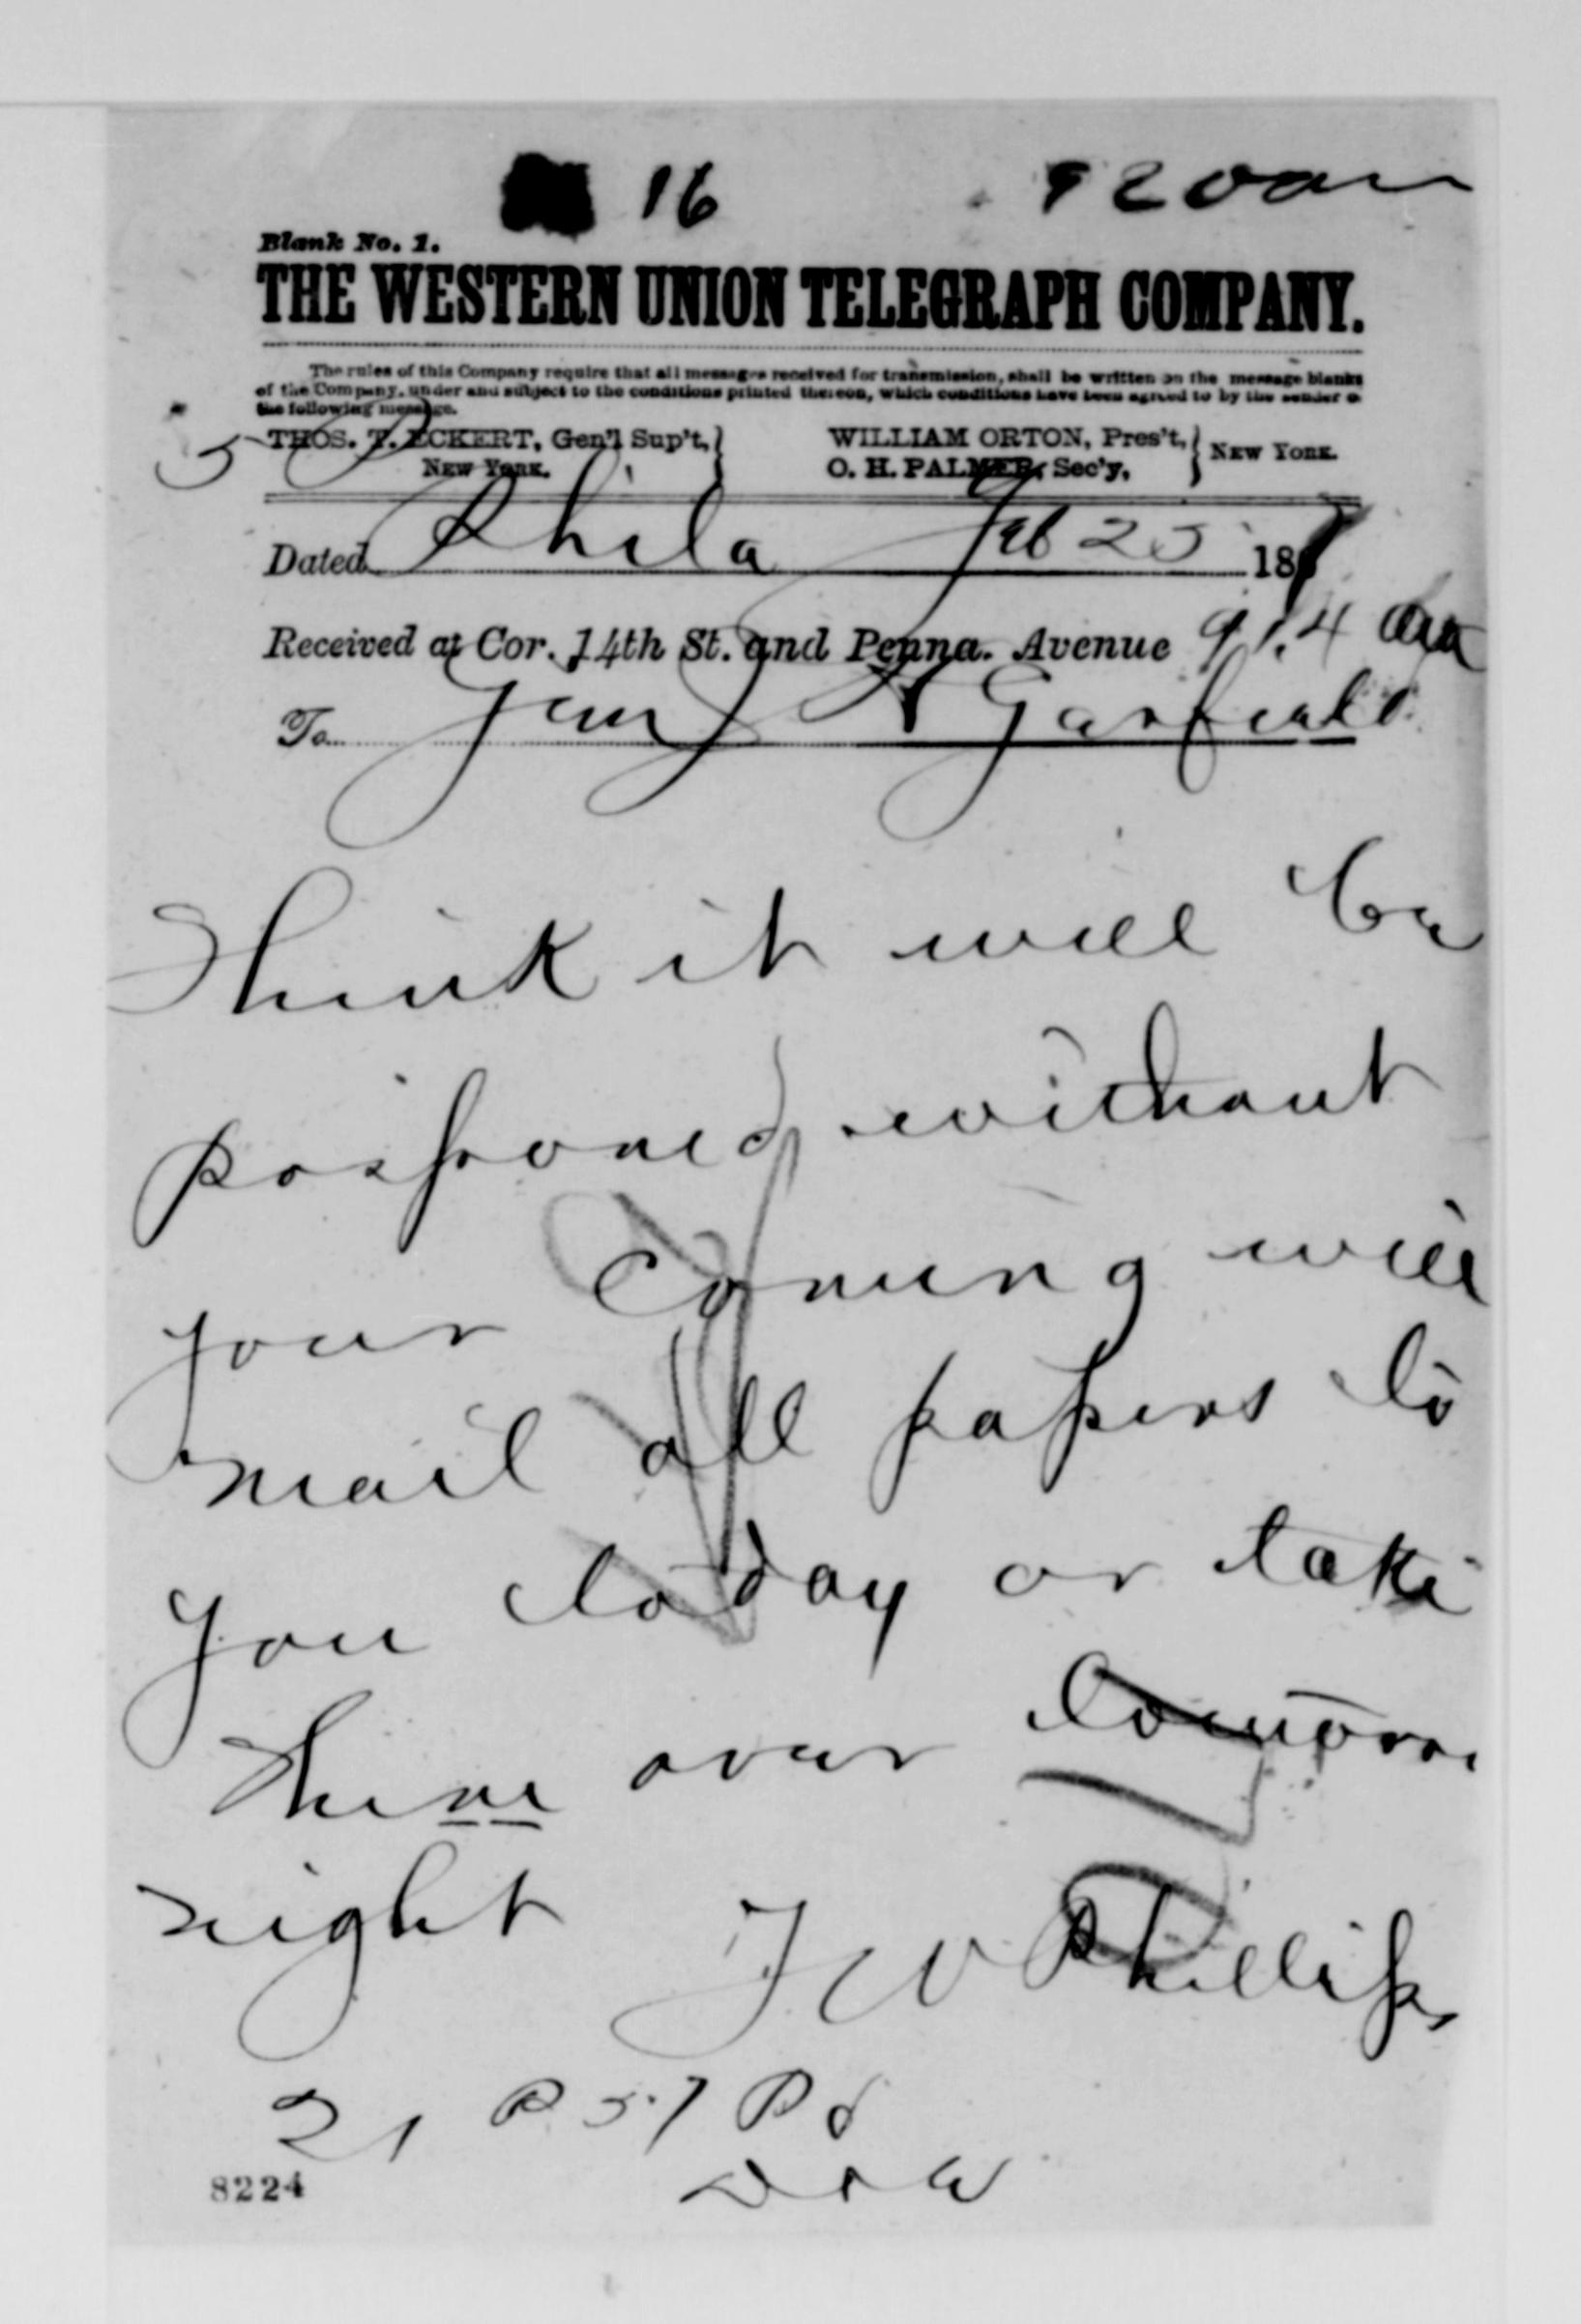 16 920am
Blank No. 1.
THE WESTERN UNION TELEGRAPH COMPANY.
The rules of this Company require that all messages received for transmission, shall be written on the message blanks
of the Company, under and subject to the conditions printed thereon, which conditions have been agreed to by the sender o
the following message.
THOS. T. ECKERT, Gen'l Sup't, WILLIAM ORTON, Pres't,
NEW YORK. O. H. PALMER, Sec'y, NEW YORK.
5
Dated Phila Feb 25 187
Received at Cor. 14th St. and Penna. Avenue 914 am
To Genl J A Garfield
Think it will be
posponed without
your coming will
mail all papers to
you today or take
them over tomorro
night
T W Phillips
21 P 57 Pd
8224